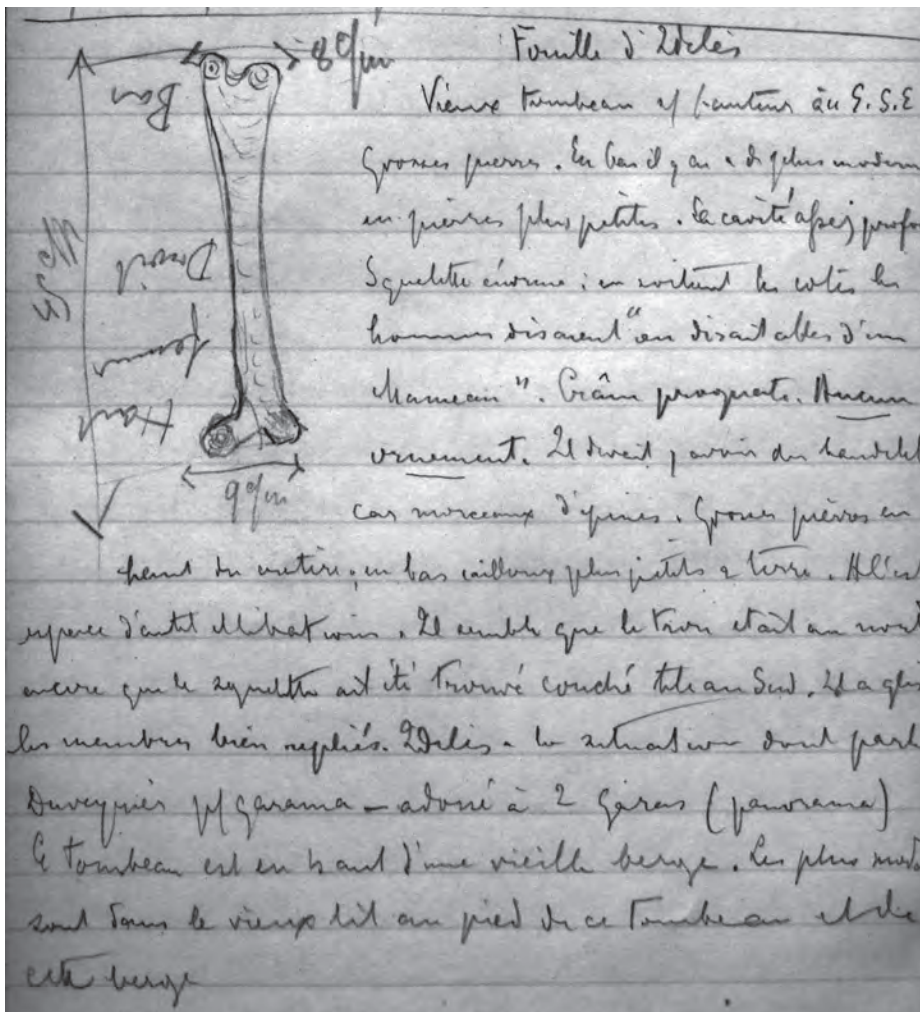 8 c/m
Fouille d'Idelès
Bas
Vieux tombeau s/ hauteur au S.S.E
Grosses pierres. En bas il y en a de plus modern
en pierres plus petites. La cavité assez profo
Droit
Squelette énorme : en sortant les côtes les
fémur
hommes disaient "on dirait celles d'un
Haut
chameau". Crâne prognate. Aucun
ornement. Il devait y avoir des
9 c/m
car morceaux d'épines. Grosses pierres en
haut du ; en bas cailloux plus petits & terre. A l'est
espèce d'autel à libations. Il semble que le trou était au nord
encore que le squelette ait été trouvé couché tête au Sud. Il a
les membres bien repliés. Idelès a la situation dont parle
Duveyrier p/ garama — adossé à 2 garas (panorama)
Ce tombeau est en haut d'une vieille berge. Les plus mode
sont dans le vieux lit au pied de ce tombeau et de
cette berge